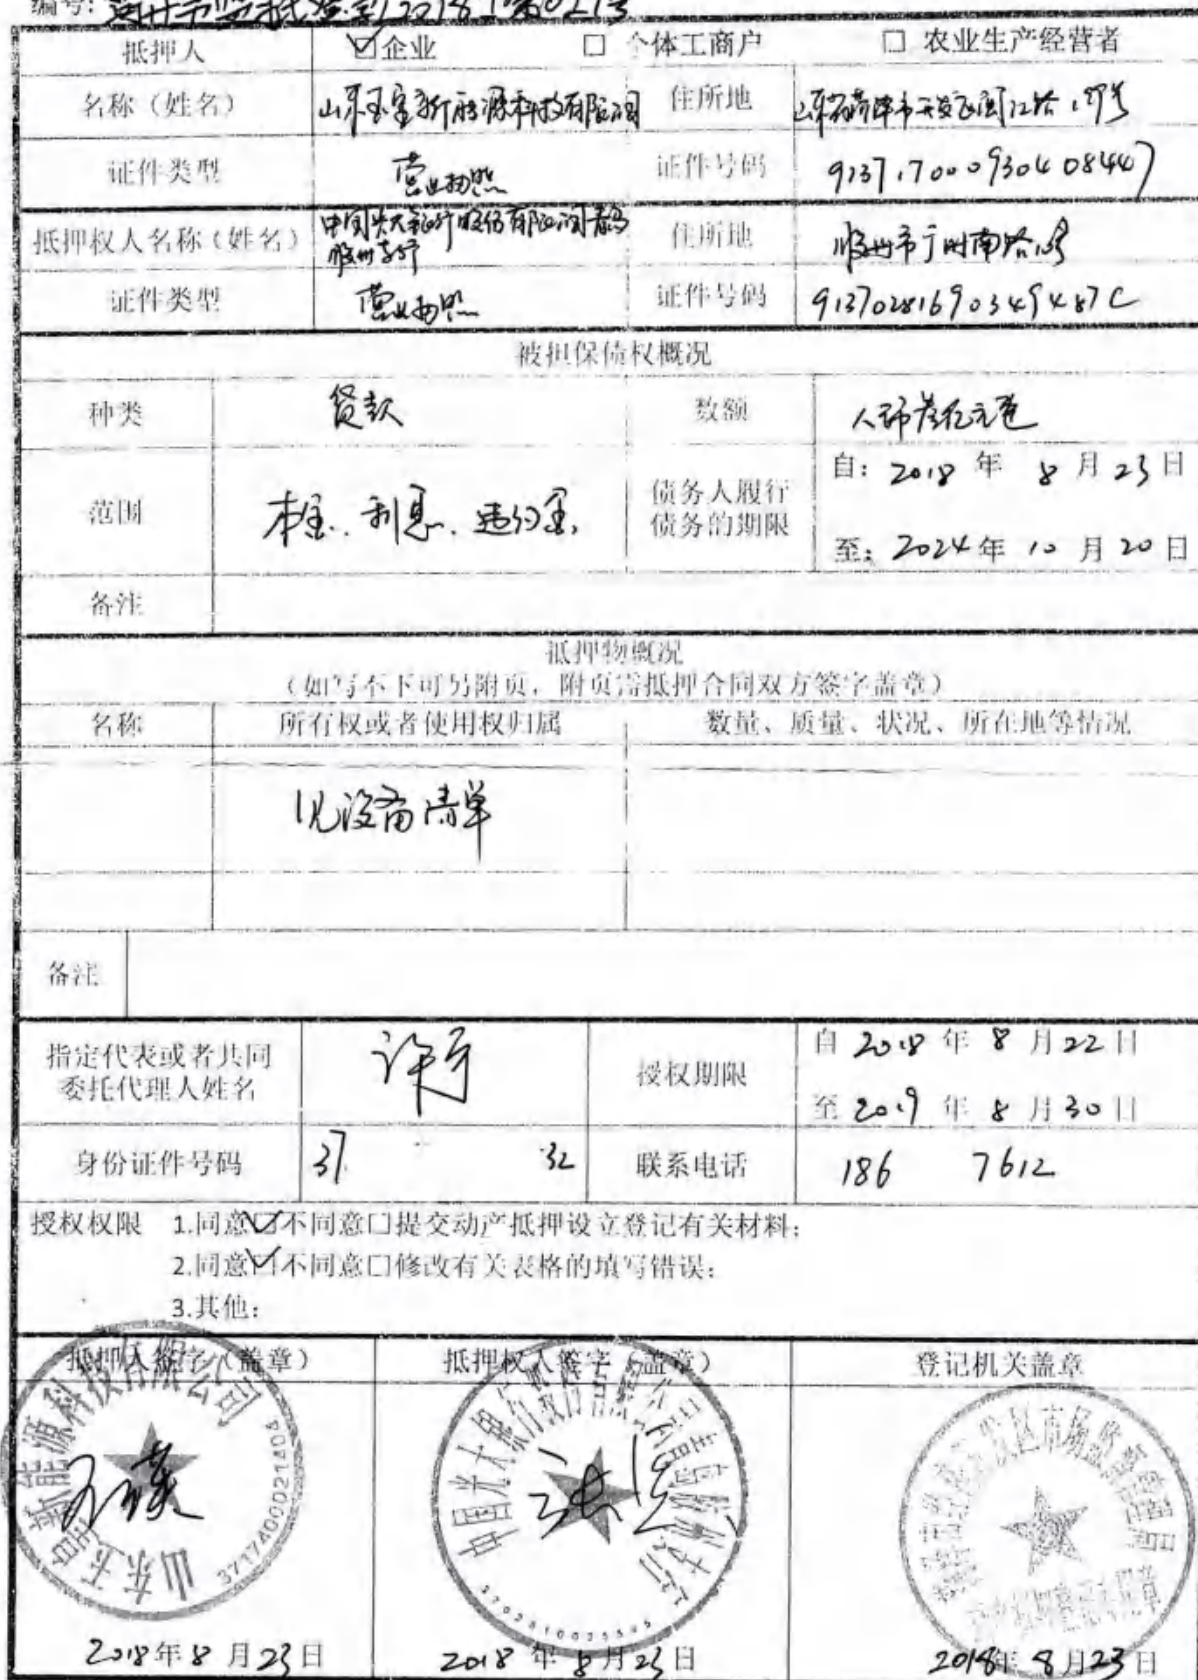 编号:
抵押人 ☑企业 □ 个体工商户 □ 农业生产经营者
名称（姓名） 山东玉皇新能源科技有限公司 住所地 山东省菏泽市开发区闽江路
证件类型 营业执照 证件号码 913717000930408447
抵押权人名称（姓名） 中国光大银行股份有限公司青岛 住所地 胶州市广州南路
胶州支行
证件类型 营业执照 证件号码 91370281690349487C
被担保债权概况
种类 贷款 数额 人民币叁亿元整
范围 本金、利息、违约金 债务人履行 自：2018 年 8 月 23 日
债务的期限 至：2024 年 10 月 20 日
备注
抵押物概况
（如写不下可另附页，附页需抵押合同双方签字盖章）
名称 所有权或者使用权归属 数量、质量、状况、所在地等情况
见设备清单
备注
指定代表或者共同 授权期限 自 2018 年 8 月 22 日
委托代理人姓名 至 2019 年 8 月 30 日
身份证件号码 37 32 联系电话 186 7612
授权权限 1.同意☑不同意□提交动产抵押设立登记有关材料；
2.同意☑不同意□修改有关表格的填写错误；
3.其他：
抵押人签字（盖章） 抵押权人签字（盖章） 登记机关盖章
山东玉皇新能源科技有限公司
中国光大银行股份有限公司青岛胶州支行
2018年 8 月 23 日 2018 年 8 月 23 日 2018年 8 月 23 日